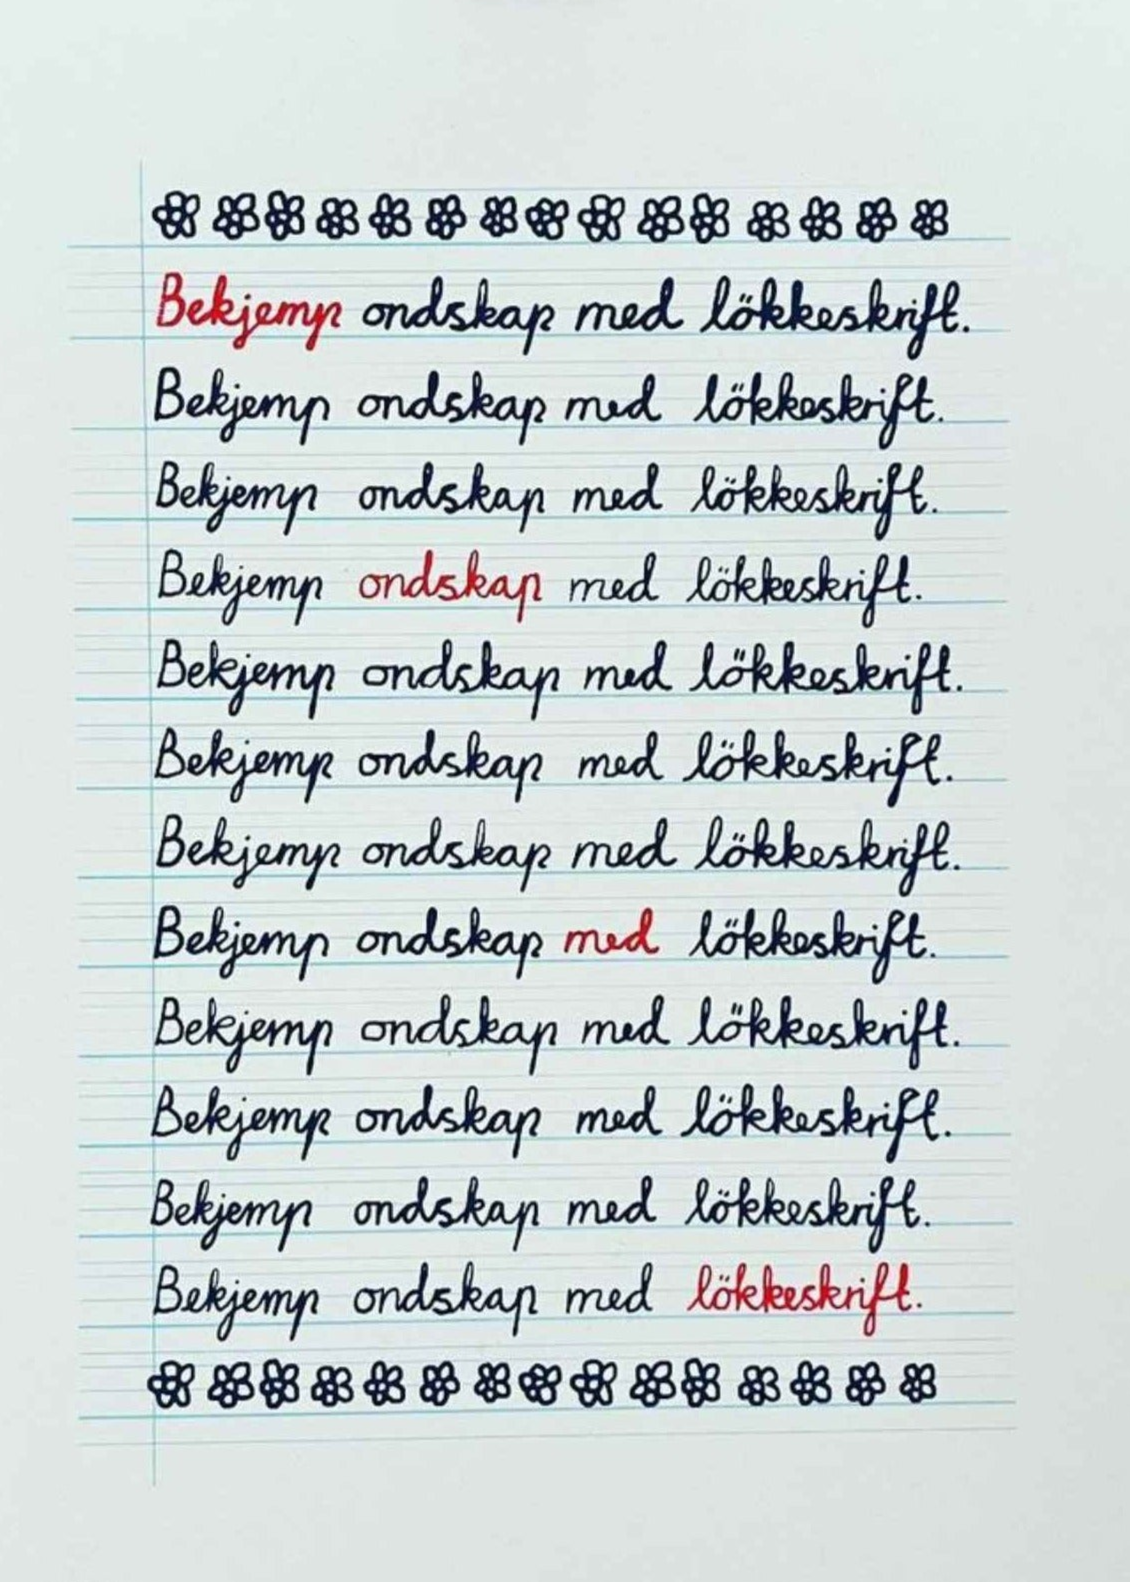 Bekjemp ondskap med lökkeskrift.
Bekjemp ondskap med lökkeskrift.
Bekjemp ondskap med lökkeskrift.
Bekjemp ondskap med lökkeskrift.
Bekjemp ondskap med lökkeskrift.
Bekjemp ondskap med lökkeskrift.
Bekjemp ondskap med lökkeskrift.
Bekjemp ondskap med lökkeskrift.
Bekjemp ondskap med lökkeskrift.
Bekjemp ondskap med lökkeskrift.
Bekjemp ondskap med lökkeskrift.
Bekjemp ondskap med lökkeskrift.